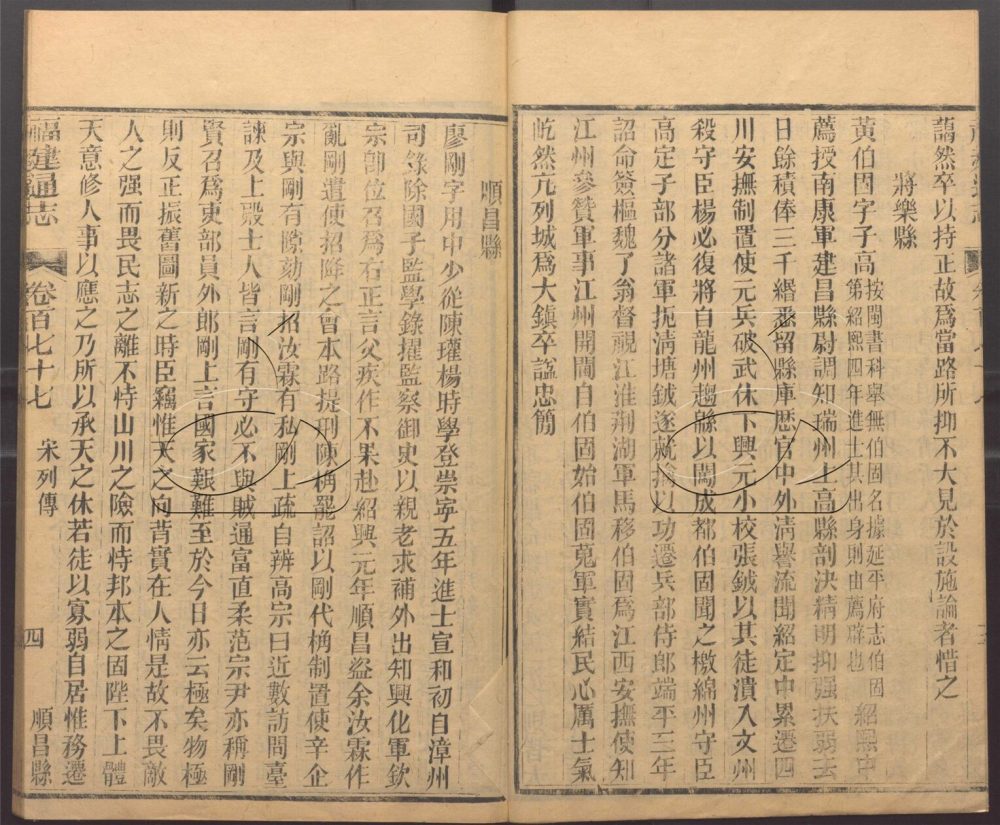 藹然卒以持正故爲當路所抑不大見於設施論者惜之
將樂縣
黃伯固字子高按閩書科舉無伯固名據延平府志伯固第紹熙四年進士其出身則由薦辟也紹熙中
薦授南康軍建昌縣尉調知瑞州上高縣剖決精明抑强扶弱去
日餘積俸三千緡悉留縣庫歷官中外淸譽流聞紹定中累遷四
川安撫制置使元兵破武休下興元小校張鉞以其徒潰入文州
殺守臣楊必復將自龍州趨緜以闖成都伯固聞之檄綿州守臣
高定子部分諸軍扼淸塘鉞遂就擒以功遷兵部侍郎端平三年
詔命簽樞魏了翁督視江淮荆湖軍馬移伯固爲江西安撫使知
江州參贊軍事江州開閫自伯固始伯固蒐軍實結民心厲士氣
屹然亢列城爲大鎮卒諡忠簡
順昌縣
廖剛字用中少從陳瓘楊時學登崇寧五年進士宣和初自漳州
司錄除國子監學錄擢監察御史以親老求補外出知興化軍欽
宗卽位召爲右正言父疾作不果赴紹興元年順昌盜余汝霖作
亂剛遣使招降之會本路提刑陳桷罷詔以剛代桷制置使辛企
宗與剛有隙劾剛招汝霖有私剛上疏自辨高宗曰近數訪問臺
諫及上殿士人皆言剛有守必不與賊通富直柔范宗尹亦稱剛
賢召爲吏部員外郎剛上言國家艱難至於今日亦云極矣物極
則反正振舊圖新之時臣竊惟天之向背實在人情是故不畏敵
人之强而畏民志之離不恃山川之險而恃邦本之固陛下上體
天意修人事以應之乃所以承天之休若徒以寡弱自居惟務遷
福建通志
卷百七十七
宋列傳
四
順昌縣